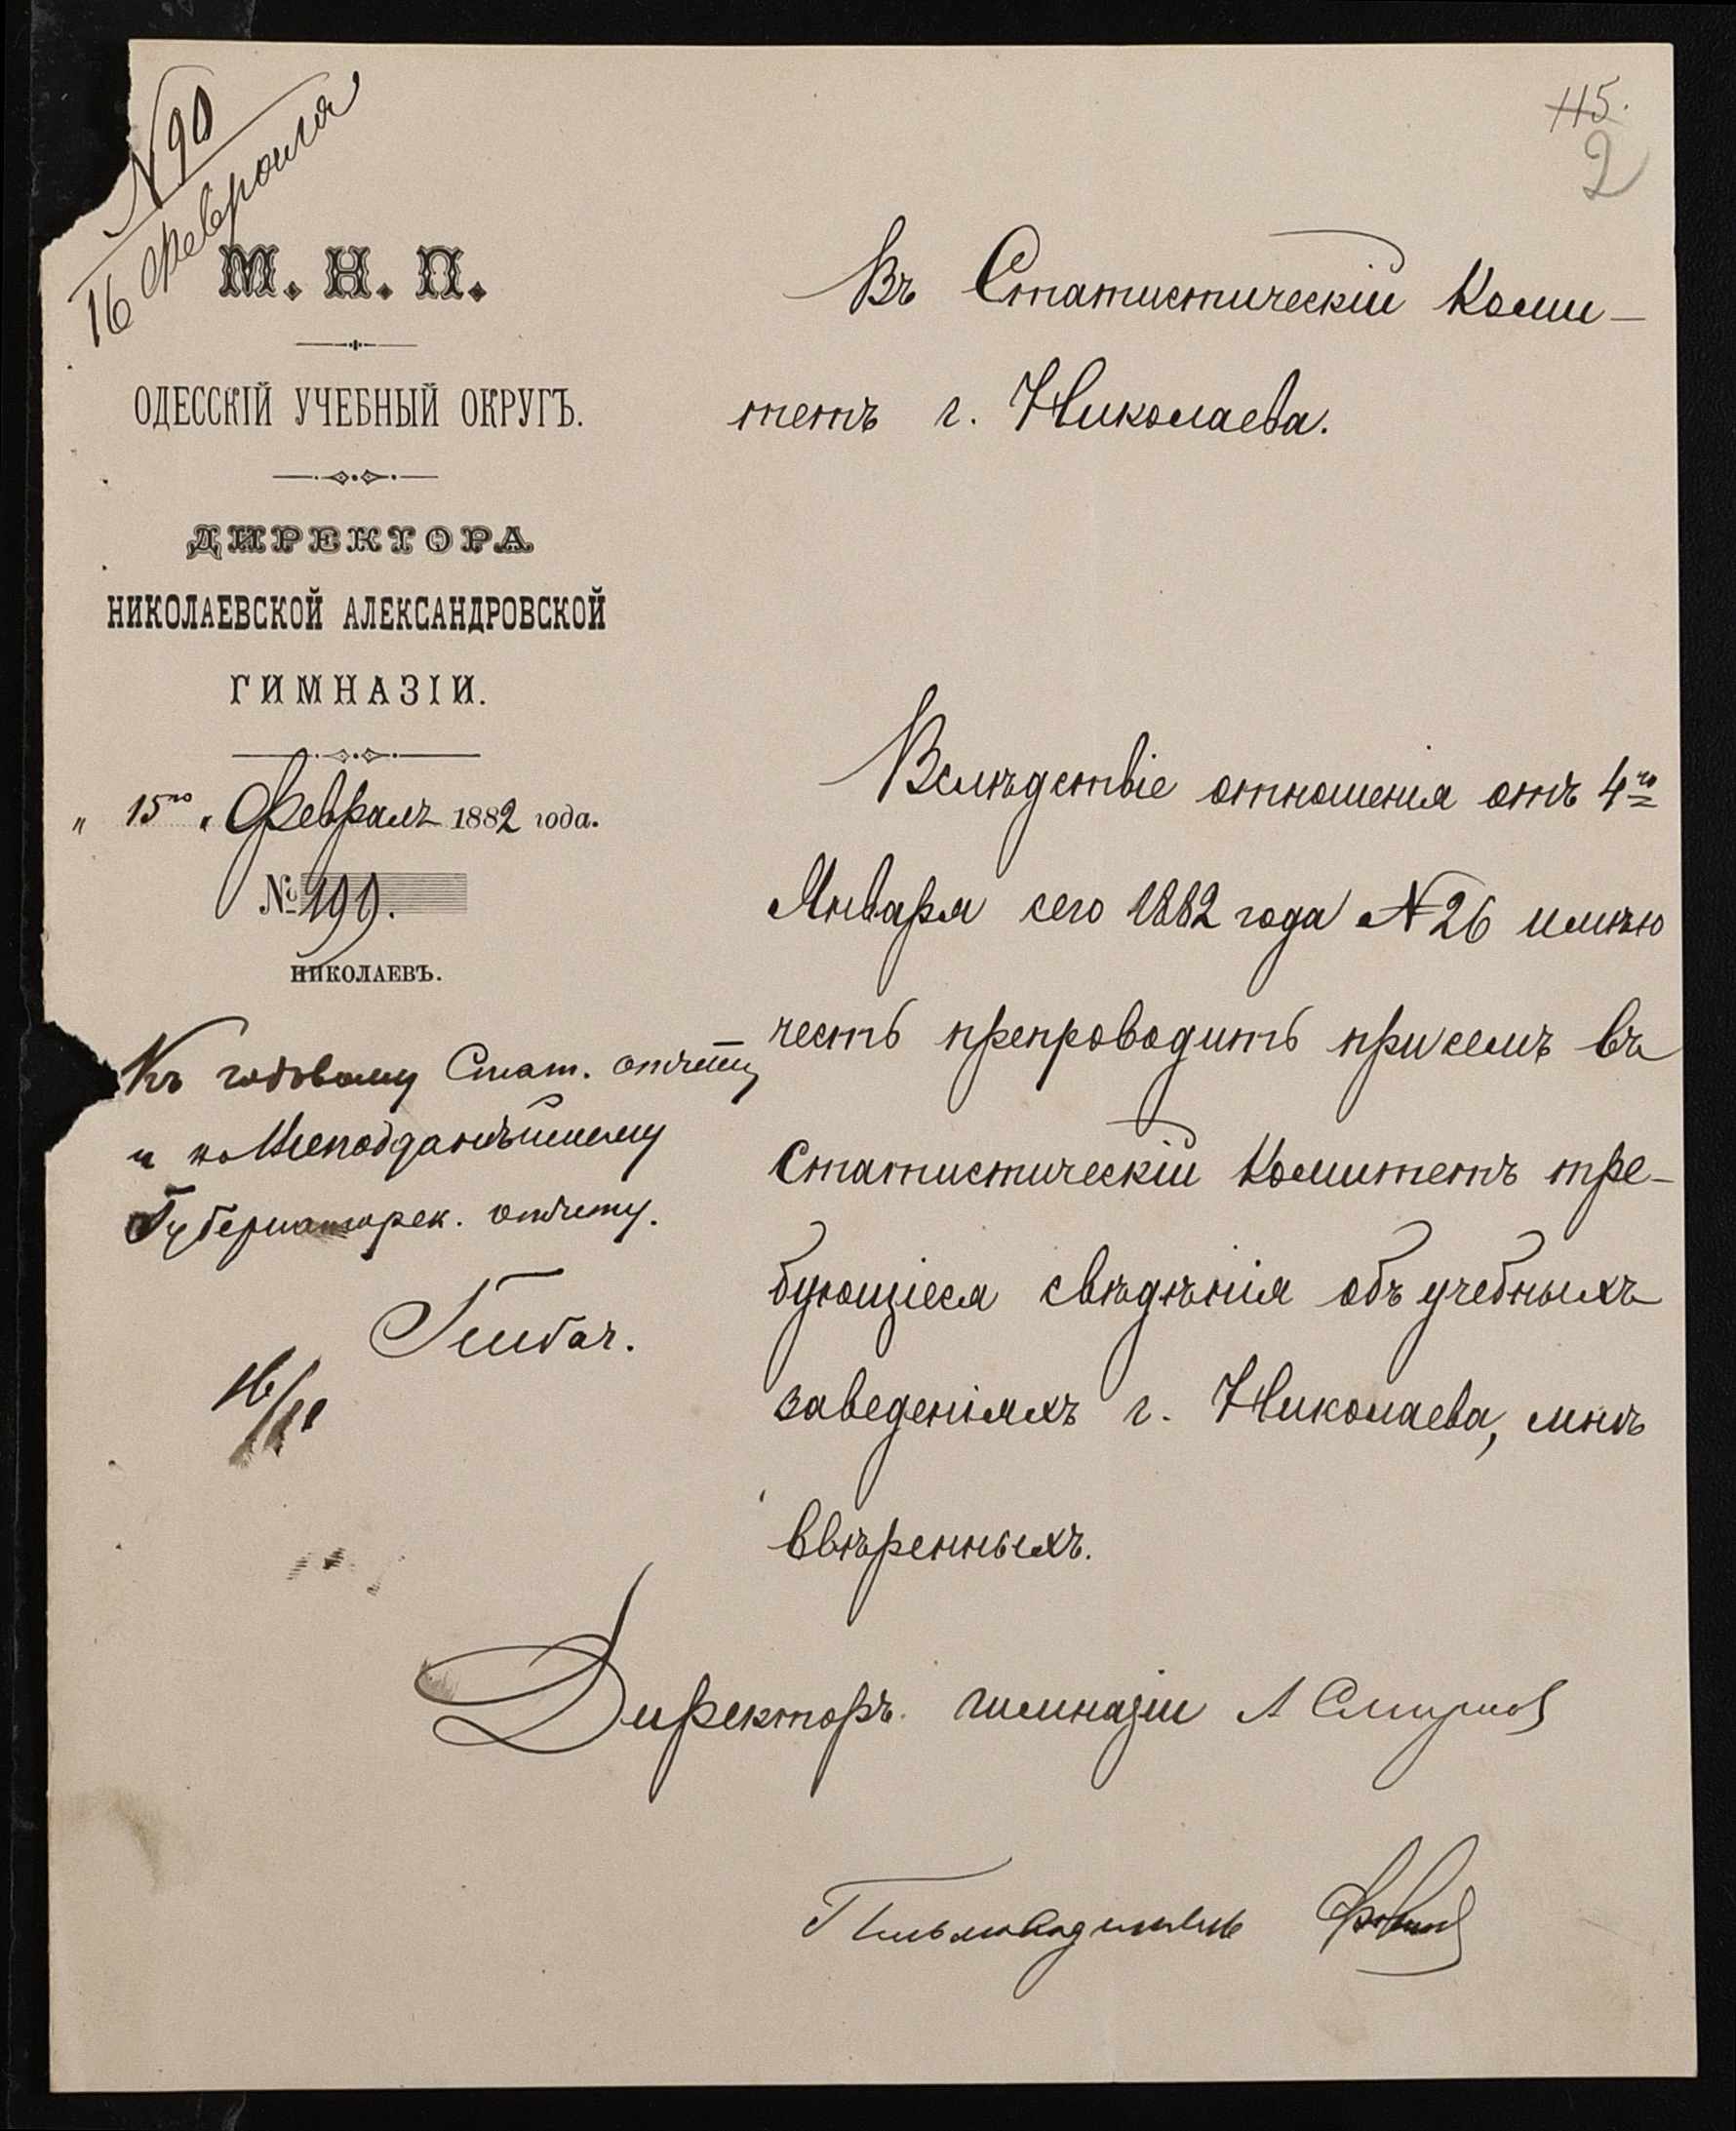 № 90
16 февраля
115.
2
М. Н. П.
ОДЕССКІЙ УЧЕБНЫЙ ОКРУГЪ.
ДИРЕКТОРА
НИКОЛАЕВСКОЙ АЛЕКСАНДРОВСКОЙ
ГИМНАЗІИ.
„ 15го „ Февраля 1882 года.
№ 199.
НИКОЛАЕВЪ.
Къ годовому Стат. отчету
и
Губернаторск. отчету.
16/II
Въ Статистическій Коми-
тетъ г. Николаева.
Вслѣдствіе отношенія отъ 4го
Января сего 1882 года № 26 имѣю
честь препроводить присемъ въ
Статистическій Комитетъ тре-
бующіеся свѣдѣнія объ учебныхъ
заведеніяхъ г. Николаева, мнѣ
ввѣренныхъ.
Директоръ гимназіи А Смирнов
Письмоводитель